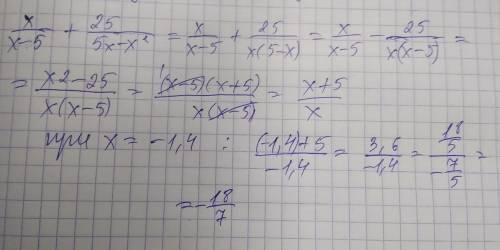 x/(x-5) + 25/(5x-x²) = x/(x-5) + 25/(x(5-x)) = x/(x-5) - 25/(x(x-5)) =
= (x2-25)/(x(x-5)) = ((x-5)(x+5))/(x(x-5)) = (x+5)/x
при x = -1,4 : ((-1,4)+5)/(-1,4) = 3,6/(-1,4) = (18/5)/(-7/5) =
= -18/7